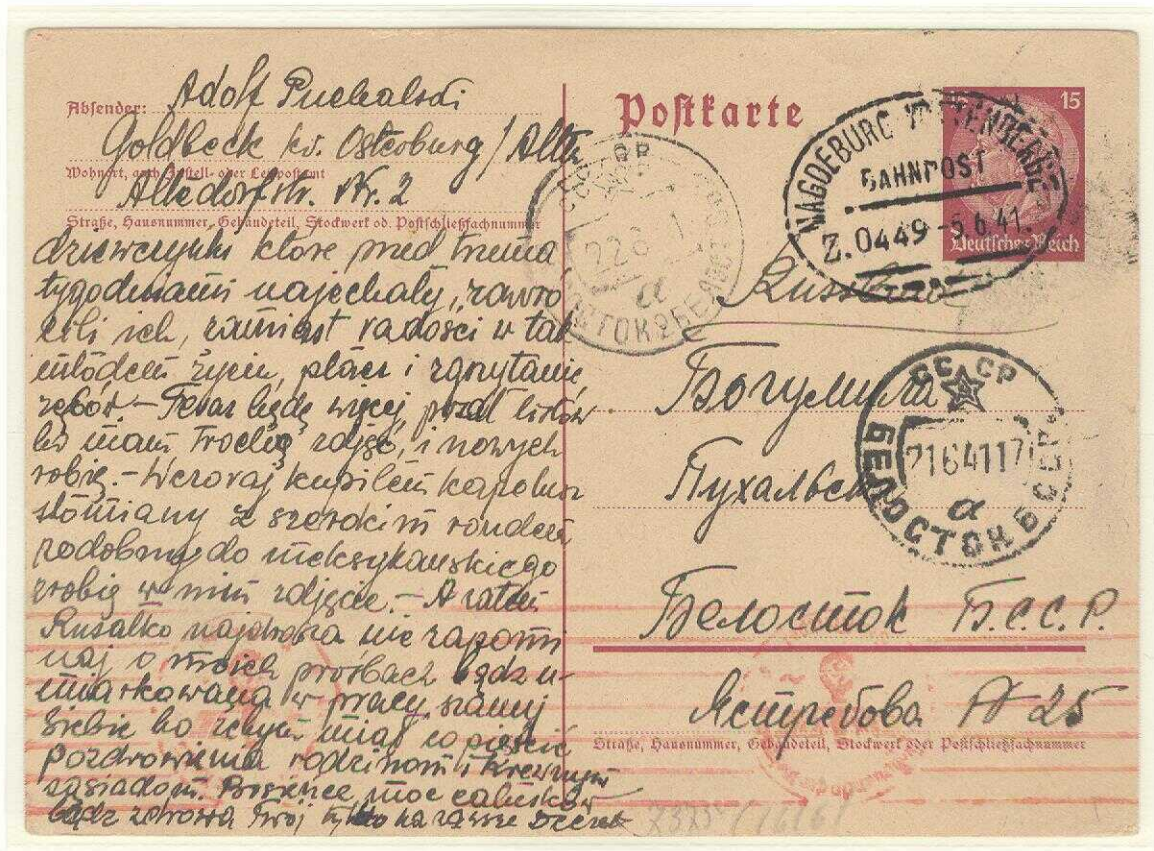 Absender: Adolf Puchalski
Goldbeck kr. Osterburg / Altm
Wohnort, auch Zustell- oder Leitpostamt
Altedorfstr. Nr. 2
Straße, Hausnummer, Gebäudeteil, Stockwerk od. Postschließfachnummer
dziewczynki które przed trzema
tygodniami najechały, zawró
cili ich, zamiast radości w tak
młodem życiu, płacz i zgrzytanie
zębów. – Teraz będę więcej listów
bo mam trochę zdjęć, i nowych
robię. – Wczoraj kupiłem kapelusz
słomiany z szerokim rondem
podobny do meksykańskiego
zrobię w nim zdjęcie. – A zatem
Rusałko najdroższa nie zapomi
naj o moich prośbach bądź u-
miarkowaną w pracy szanuj
siebie bo żebym miał co pieścić
pozdrowienia rodzinom i krewnym
sąsiadom. Bożence moc całusków
bądź zdrowa Twój tylko na zawsze
Postkarte
15
Deutsches Reich
MAGDEBURG WITTENBERGE
BAHNPOST
Z. 0449 -5.6.41.
СССР
22 6
а
БЕЛОСТОК 2 БЕЛ
Russland
Богумила
Пухальска
СССР
21 6 41 17
а
БЕЛОСТОК БССР
Белосток Б.С.С.Р.
Ястребова № 25
Straße, Hausnummer, Gebäudeteil, Stockwerk oder Postschließfachnummer